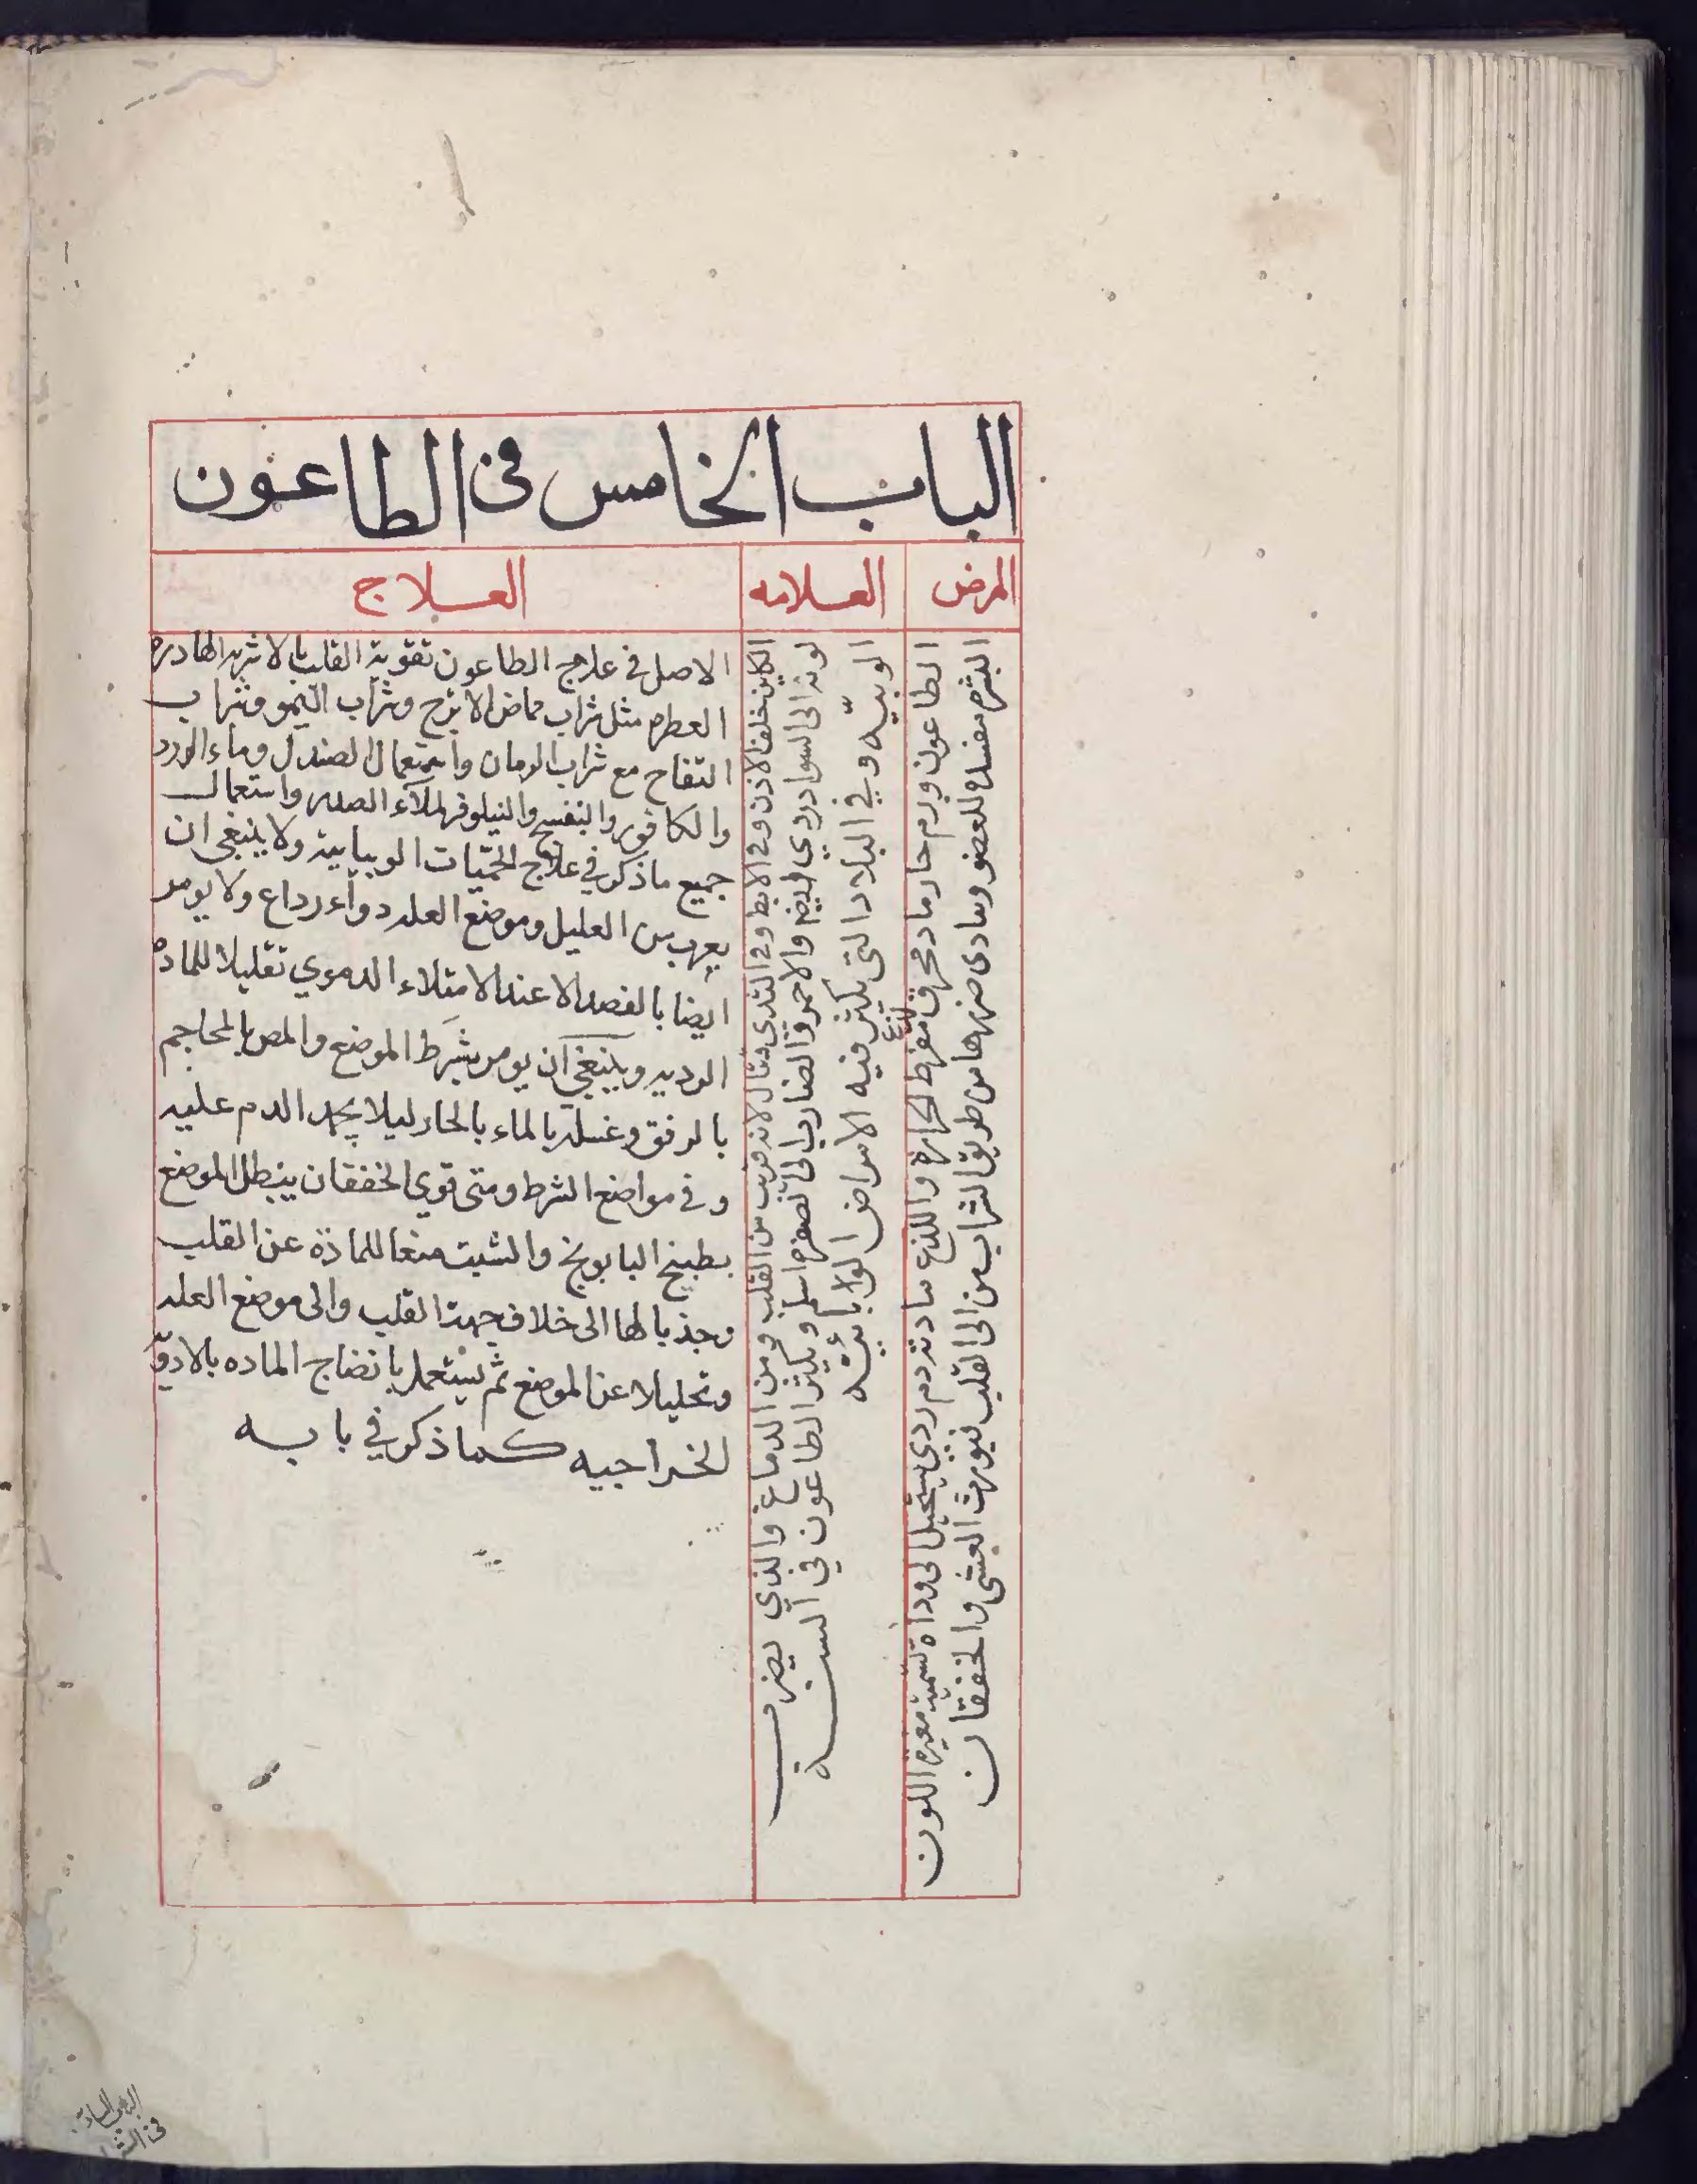 الباب الخامس في الطاعون
المرض
العلامه
العلاج
الطاعون ورم حار مادمحرق مفرط الحرارة واللذع مادته دم ردي يستحيل الى ودا سمية مغيرة اللون
لذع
البشره مفسده للعضو وينادى ضررها من طريق الشراب من الى القلب فيورث الغشى والخفقان
الكاين خلف الاذن وفي الابط وفي الثدى قتال لانه قريب من القلب ومن الدماغ والذي يضرب
لونه الى السواد ردي ايضا والاحمر والضارب الى الصفره اسلم ويكثر الطاعون في السنة
الوبيّه وفي البلاد التى يكثر فيه الامراض الوبائيه
الاصل في علاج الطاعون تقوية القلب بالاشربه الهادره
العطره مثل شراب حماض الاترج وشراب الليمو وشراب
التفاح مع شراب الرمان واستعمال الصندل وماء الورد
والكافور والبنفسج والنيلوفر لهلاء الصدر واستعمال
جميع ما ذكر في علاج الحميات الوبيايية ولا ينبغي ان
يقرب من العليل وموضع العله دواء رداع ولا يومر
ايضا بالفصد الا عند الامتلاء الدموي تقليلا للماده
الرديه وينبغي ان يومر بشرط الموضع والمص بالمحاجم
بالرفق وغسله بالماء بالحار ليلا يجمد الدم عليه
وفي مواضع الشرط ومتى قوي الخفقان ينبطل الموضع
بطبيخ البابونج والشبت منعا للمادة عن القلب
وجذبا لها الى خلاف جهة القلب والى موضع العله
وتحليلا عن الموضع ثم يستعمل بانضاج الماده بالادوية
الخراجيه كما ذكر في بابه
الباب السادس
في